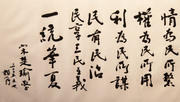 情為民所繫
權為民所用
利為民所謀
民有民治
民享三民主義
一統華夏
宋楚瑜